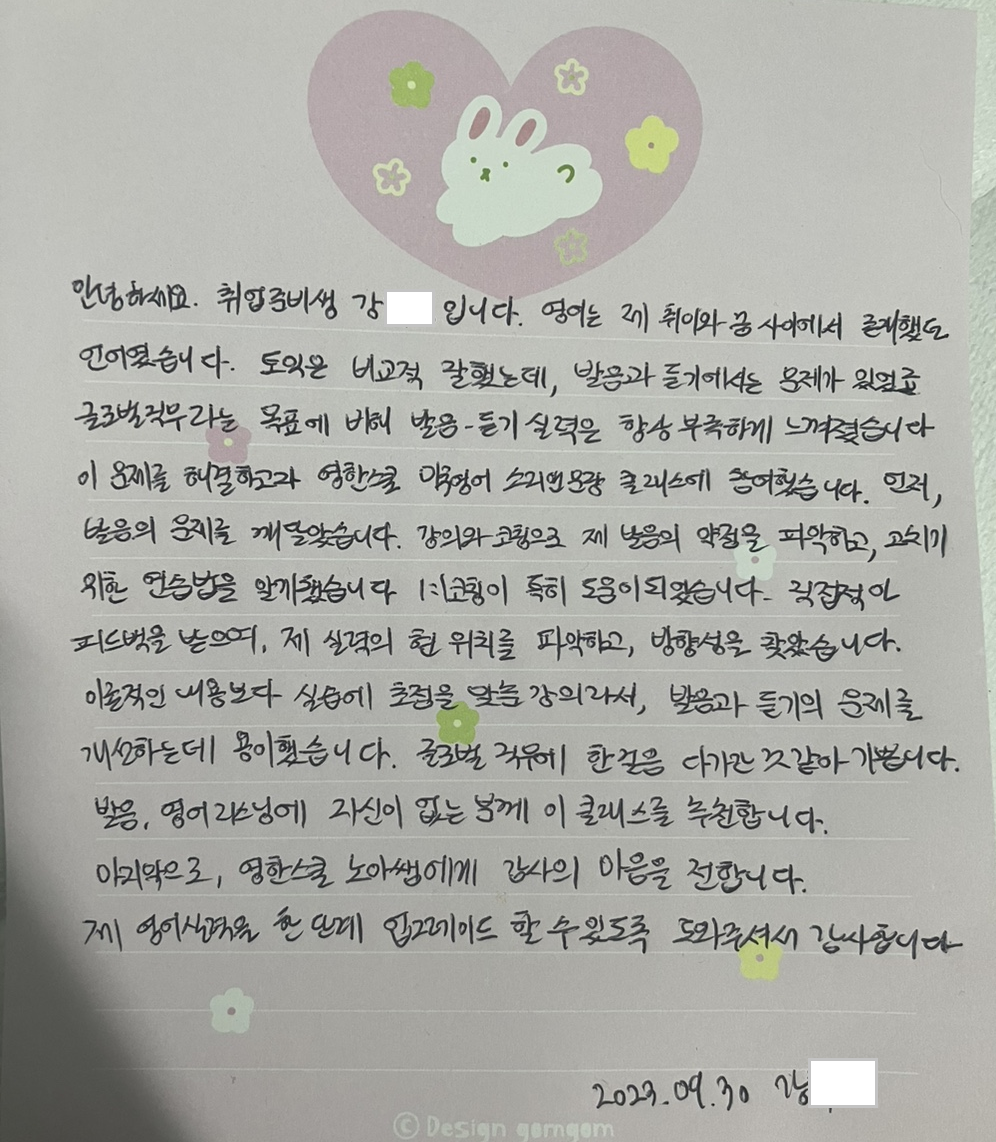 안녕하세요. 취업준비생 강 입니다. 영어는 제 취이와 꿈 사이에서 존재했던
언어였습니다. 토익은 비교적 잘했는데, 발음과 듣기에서는 문제가 있었죠
글로벌직무라는 목표에 비해 발음-듣기 실력은 항상 부족하게 느껴졌습니다
이 문제를 해결하고자 영한스쿨 미국영어 소리면문장 클래스에 참여했습니다. 먼저,
발음의 문제를 깨달았습니다. 강의와 코칭으로 제 발음의 약점을 파악하고, 고치기
위한 연습법을 알게됐습니다 1:1코칭이 특히 도움이 되었습니다. 직접적인
피드백을 받으며, 제 실력의 현 위치를 파악하고, 방향성을 찾았습니다.
이론적인 내용보다 실습에 초점을 맞춘 강의라서, 발음과 듣기의 문제를
개선하는데 용이했습니다. 글로벌 직무에 한걸음 다가간 것 같아 기쁩니다.
발음, 영어 리스닝에 자신이 없는 분께 이 클래스를 추천합니다.
마지막으로, 영한스쿨 노아쌤에게 감사의 마음을 전합니다.
제 영어실력을 한 단계 업그레이드 할 수 있도록 도와주셔서 감사합니다
2023.09.30 강
© Design gomgom